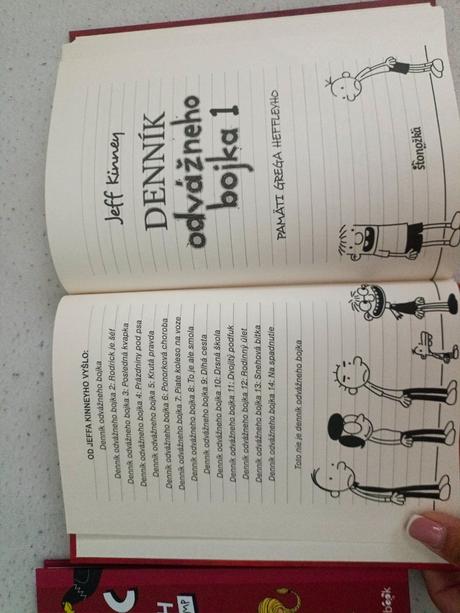 OD JEFFA KINNEYHO VYŠLO:
Denník odvážneho bojka
Denník odvážneho bojka 2: Rodrick je šéf
Denník odvážneho bojka 3: Posledná kvapka
Denník odvážneho bojka 4: Prázdniny pod psa
Denník odvážneho bojka 5: Krutá pravda
Denník odvážneho bojka 6: Ponorková choroba
Denník odvážneho bojka 7: Piate koleso na voze
Denník odvážneho bojka 8: To je ale smola
Denník odvážneho bojka 9: Dlhá cesta
Denník odvážneho bojka 10: Drsná škola
Denník odvážneho bojka 11: Dvojitý podfuk
Denník odvážneho bojka 12: Rodinný úlet
Denník odvážneho bojka 13: Snehová bitka
Denník odvážneho bojka 14: Na spadnutie
Toto nie je denník odvážneho bojka
Jeff Kinney
DENNÍK
odvážneho
bojka 1
PAMÄTI GREGA HEFFLEYHO
stonožka